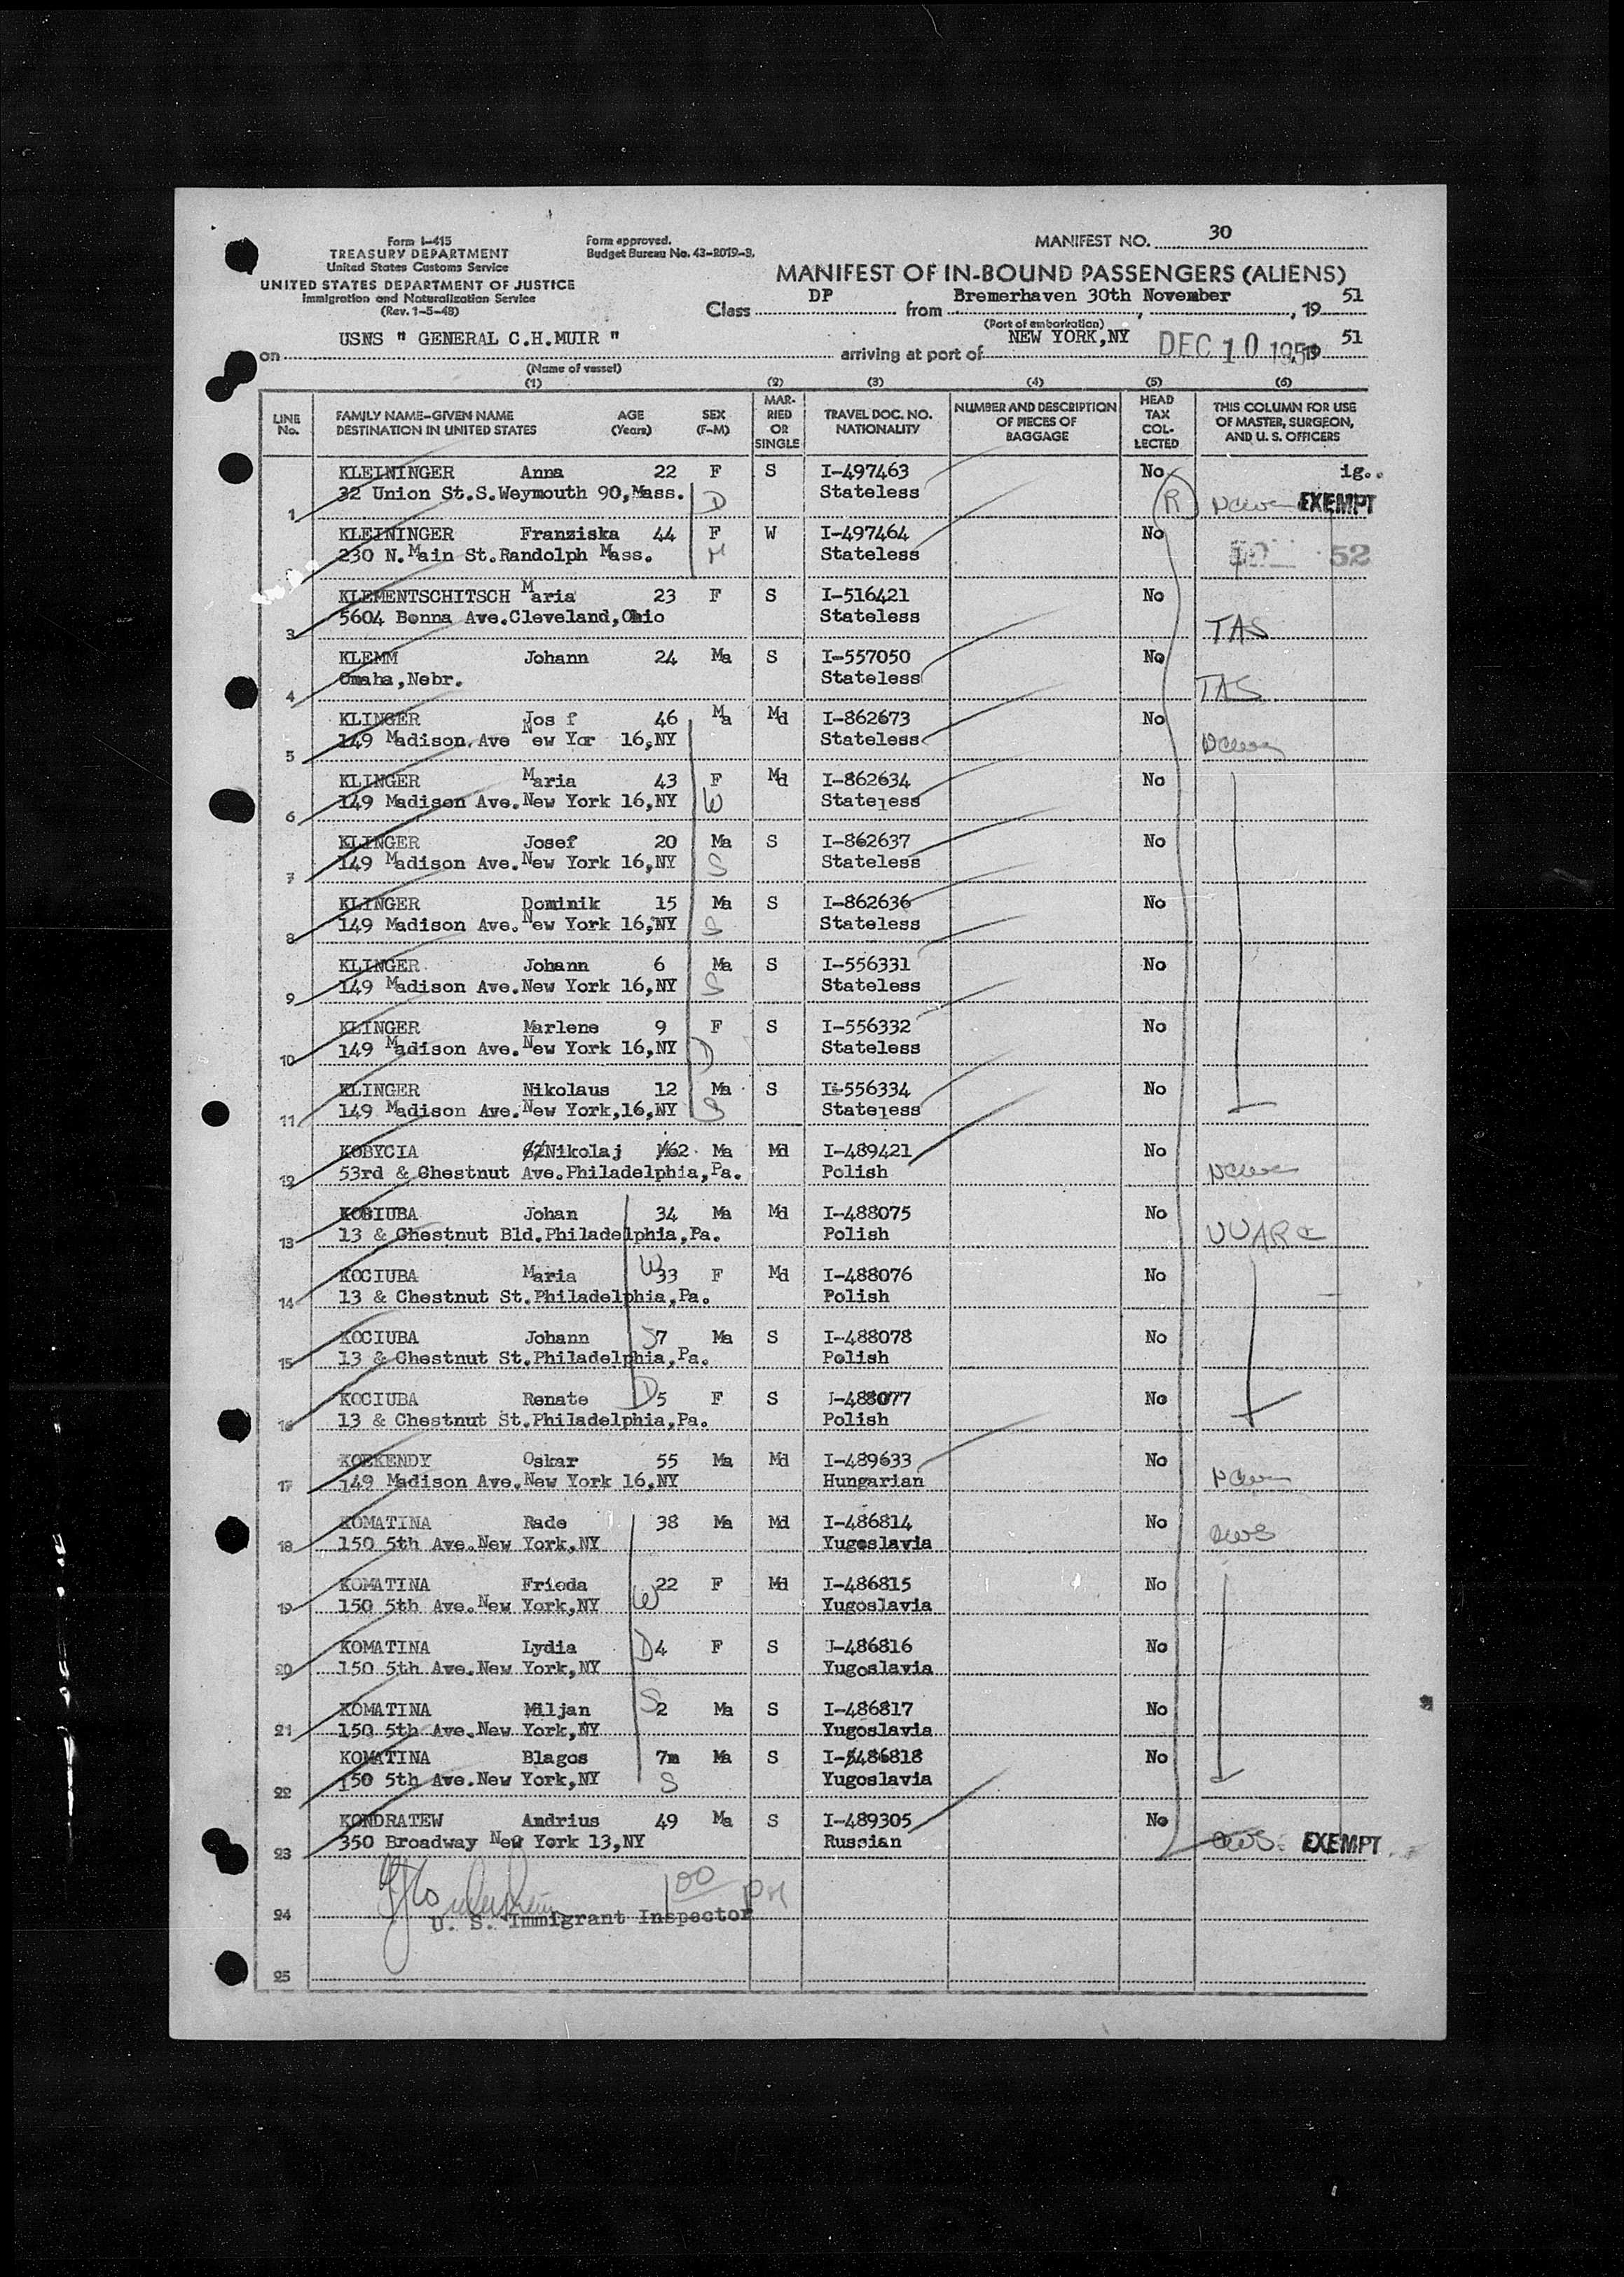 Form I-415
TREASURY DEPARTMENT
United States Customs Service
UNITED STATES DEPARTMENT OF JUSTICE
Immigration and Naturalization Service
(Rev. 1-5-48)
Form approved.
Budget Bureau No. 43-R019-3.
MANIFEST NO. 30
MANIFEST OF IN-BOUND PASSENGERS (ALIENS)
Class DP from Bremerhaven 30th November, 1951
(Port of embarkation)
on USNS " GENERAL C.H.MUIR " arriving at port of NEW YORK,NY DEC 10 1951 51
(Name of vessel)
(1) (2) (3) (4) (5) (6)
LINE No. FAMILY NAME-GIVEN NAME DESTINATION IN UNITED STATES AGE (Years) SEX (F-M) MARRIED OR SINGLE TRAVEL DOC. NO. NATIONALITY NUMBER AND DESCRIPTION OF PIECES OF BAGGAGE HEAD TAX COLLECTED THIS COLUMN FOR USE OF MASTER, SURGEON, AND U. S. OFFICERS
KLEININGER Anna 22 F S I-497463 No ig..
1 32 Union St.S.Weymouth 90,Mass. D Stateless R EXEMPT
KLEININGER Franziska 44 F W I-497464 No
230 N.Main St.Randolph Mass. M Stateless 52
KLEMENTSCHITSCH Maria 23 F S I-516421 No
3 5604 Bonna Ave.Cleveland,Ohio Stateless TAS
KLEMM Johann 24 Ma S I-557050 No
4 Omaha,Nebr. Stateless TAS
KLINGER Jos f 46 Ma Md I-862673 No
5 149 Madison.Ave New Yor 16,NY Stateless
KLINGER Maria 43 F Md I-862634 No
6 149 Madison Ave.New York 16,NY W Stateless
KLINGER Josef 20 Ma S I-862637 No
7 149 Madison Ave.New York 16,NY S Stateless
KLINGER Dominik 15 Ma S I-862636 No
8 149 Madison Ave.New York 16,NY S Stateless
KLINGER Johann 6 Ma S I-556331 No
9 149 Madison Ave.New York 16,NY S Stateless
KLINGER Marlene 9 F S I-556332 No
10 149 Madison Ave.New York 16,NY D Stateless
KLINGER Nikolaus 12 Ma S I-556334 No
11 149 Madison Ave.New York,16,NY S Stateless
KOBYCIA Nikolaj 62 Ma Md I-489421 No
12 53rd & Chestnut Ave.Philadelphia,Pa. Polish
KOBIUBA Johan 34 Ma Md I-488075 No
13 13 & Chestnut Bld.Philadelphia,Pa. Polish UUARC
KOCIUBA Maria W 33 F Md I-488076 No
14 13 & Chestnut St.Philadelphia,Pa. Polish
KOCIUBA Johann S 7 Ma S I-488078 No
15 13 & Chestnut St.Philadelphia,Pa. Polish
KOCIUBA Renate D 5 F S I-488077 No
16 13 & Chestnut St.Philadelphia,Pa. Polish
KOEKENDY Oskar 55 Ma Md I-489633 No
17 149 Madison Ave.New York 16,NY Hungarian
KOMATINA Rade 38 Ma Md I-486814 No
18 150 5th Ave.New York,NY Yugoslavia CWS
KOMATINA Frieda 22 F Md I-486815 No
19 150 5th Ave.New York,NY W Yugoslavia
KOMATINA Lydia D 4 F S I-486816 No
20 150 5th Ave.New York,NY Yugoslavia
KOMATINA Miljan S 2 Ma S I-486817 No
21 150 5th Ave.New York,NY Yugoslavia
KOMATINA Blagos 7m Ma S I-486818 No
22 150 5th Ave.New York,NY S Yugoslavia
KONDRATEW Andrius 49 Ma S I-489305 No
23 350 Broadway New York 13,NY Russian CWS EXEMPT
100 PM
24 U. S. Immigrant Inspector
25